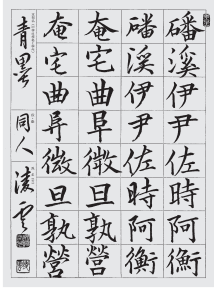 磻溪伊尹佐時阿衡
磻溪伊尹佐時阿衡
奄宅曲阜微旦孰營
奄宅曲阜微旦孰營
青墨同人凌雲